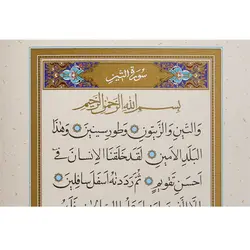 سُورَةُ التِّينِ
بِسْمِ اللهِ الرَّحْمٰنِ الرَّحِيْمِ
وَالتِّينِ وَالزَّيْتُونِ ۝ وَطُورِ سِينِينَ ۝ وَهٰذَا
الْبَلَدِ الْأَمِينِ ۝ لَقَدْ خَلَقْنَا الْإِنْسَانَ فِي
أَحْسَنِ تَقْوِيمٍ ۝ ثُمَّ رَدَدْنٰهُ أَسْفَلَ سَافِلِينَ